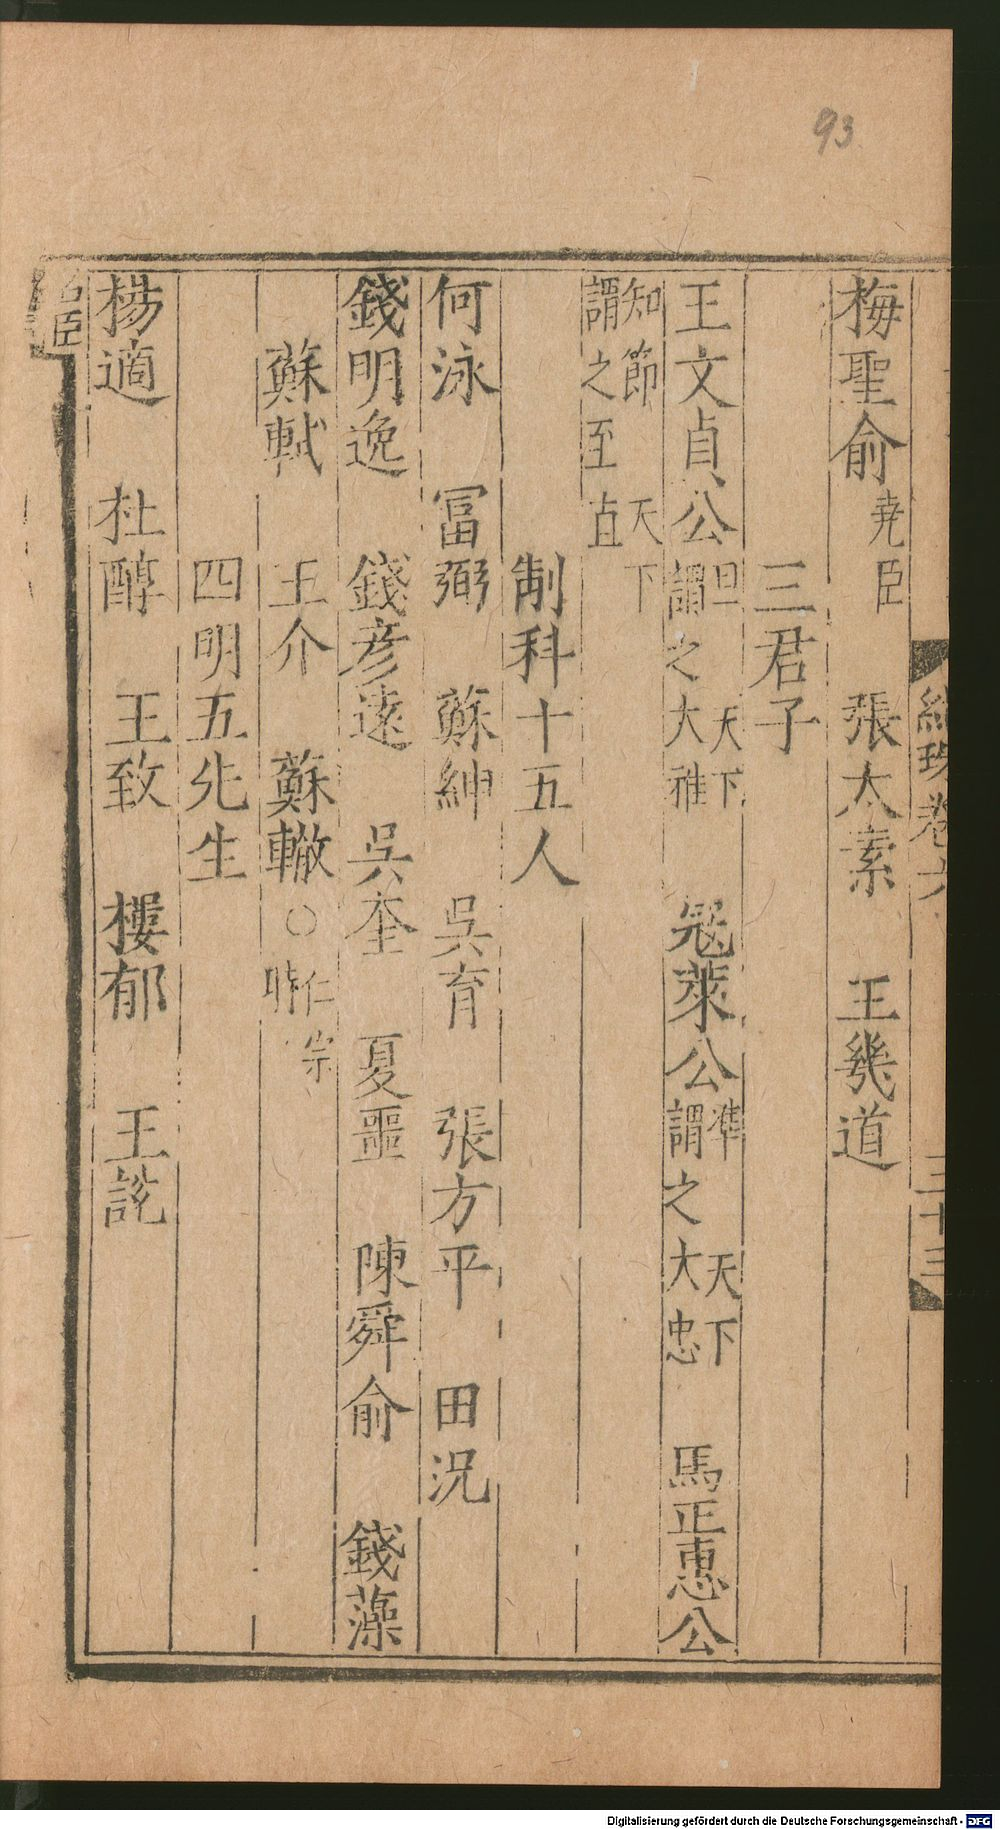 93
珠卷六
三十三
梅聖俞堯臣 張太素 王幾道
三君子
王文貞公旦天下謂之大雅 冦萊公準天下謂之大忠 馬正惠公
知節天下謂之至直
制科十五人
何泳 冨弼 蘇紳 吳育 張方平 田況
錢明逸 錢彦遠 吳奎 夏噩 陳舜俞 錢藻
蘇軾 王介 蘇轍○仁宗時
四明五先生
楊適 杜醇 王致 樓郁 王說
名臣
Digitalisierung gefördert durch die Deutsche Forschungsgemeinschaft - DFG